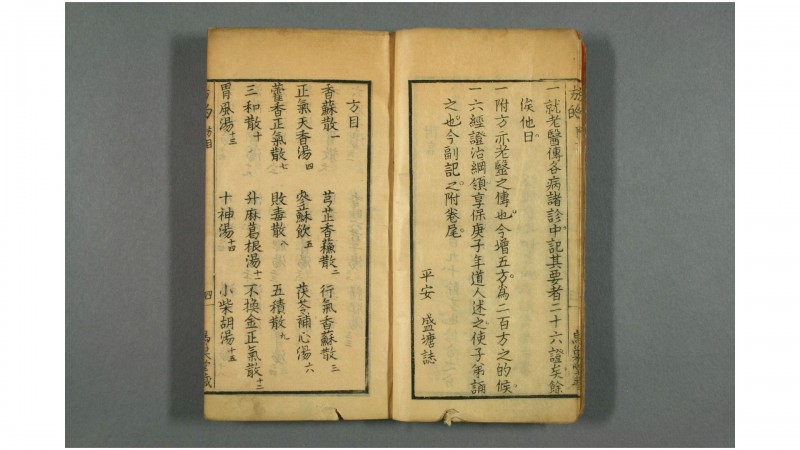 一就老醫傳各病諸診中記其要者二十六證矣餘
俟他日
一附方亦老醫之傳也今增五方為二百方之的候
一六經證治綱領享保庚子年道人述之使子弟誦
之也今副記之附卷尾
平安 盛塘誌
方目
香蘇散一 芎芷香蘇散二 行氣香蘇散三
正氣天香湯四 參蘇飲五 茯苓補心湯六
藿香正氣散七 敗毒散八 五積散九
三和散十 升麻葛根湯十一 不換金正氣散十二
胃風湯十三 十神湯十四 小柴胡湯十五
方的 方目 四